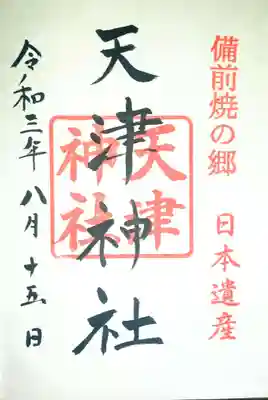 備前焼の郷 日本遺産
天津神社
天津神社
令和三年八月十五日